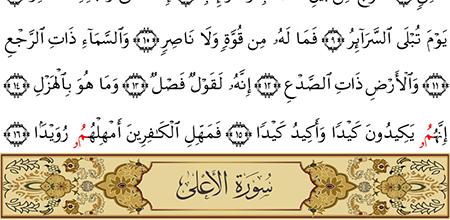 يَوْمَ تُبْلَى ٱلسَّرَآئِرُ ﴿٩﴾ فَمَا لَهُۥ مِن قُوَّةٍ وَلَا نَاصِرٍ ﴿١٠﴾ وَٱلسَّمَآءِ ذَاتِ ٱلرَّجْعِ
﴿١١﴾ وَٱلْأَرْضِ ذَاتِ ٱلصَّدْعِ ﴿١٢﴾ إِنَّهُۥ لَقَوْلٌ فَصْلٌ ﴿١٣﴾ وَمَا هُوَ بِٱلْهَزْلِ ﴿١٤﴾
إِنَّهُمُۥ يَكِيدُونَ كَيْدًا وَأَكِيدُ كَيْدًا ﴿١٥﴾ فَمَهِّلِ ٱلْكَٰفِرِينَ أَمْهِلْهُمُۥ رُوَيْدًۢا ﴿١٦﴾
سُورَةُ ٱلْأَعْلَىٰ